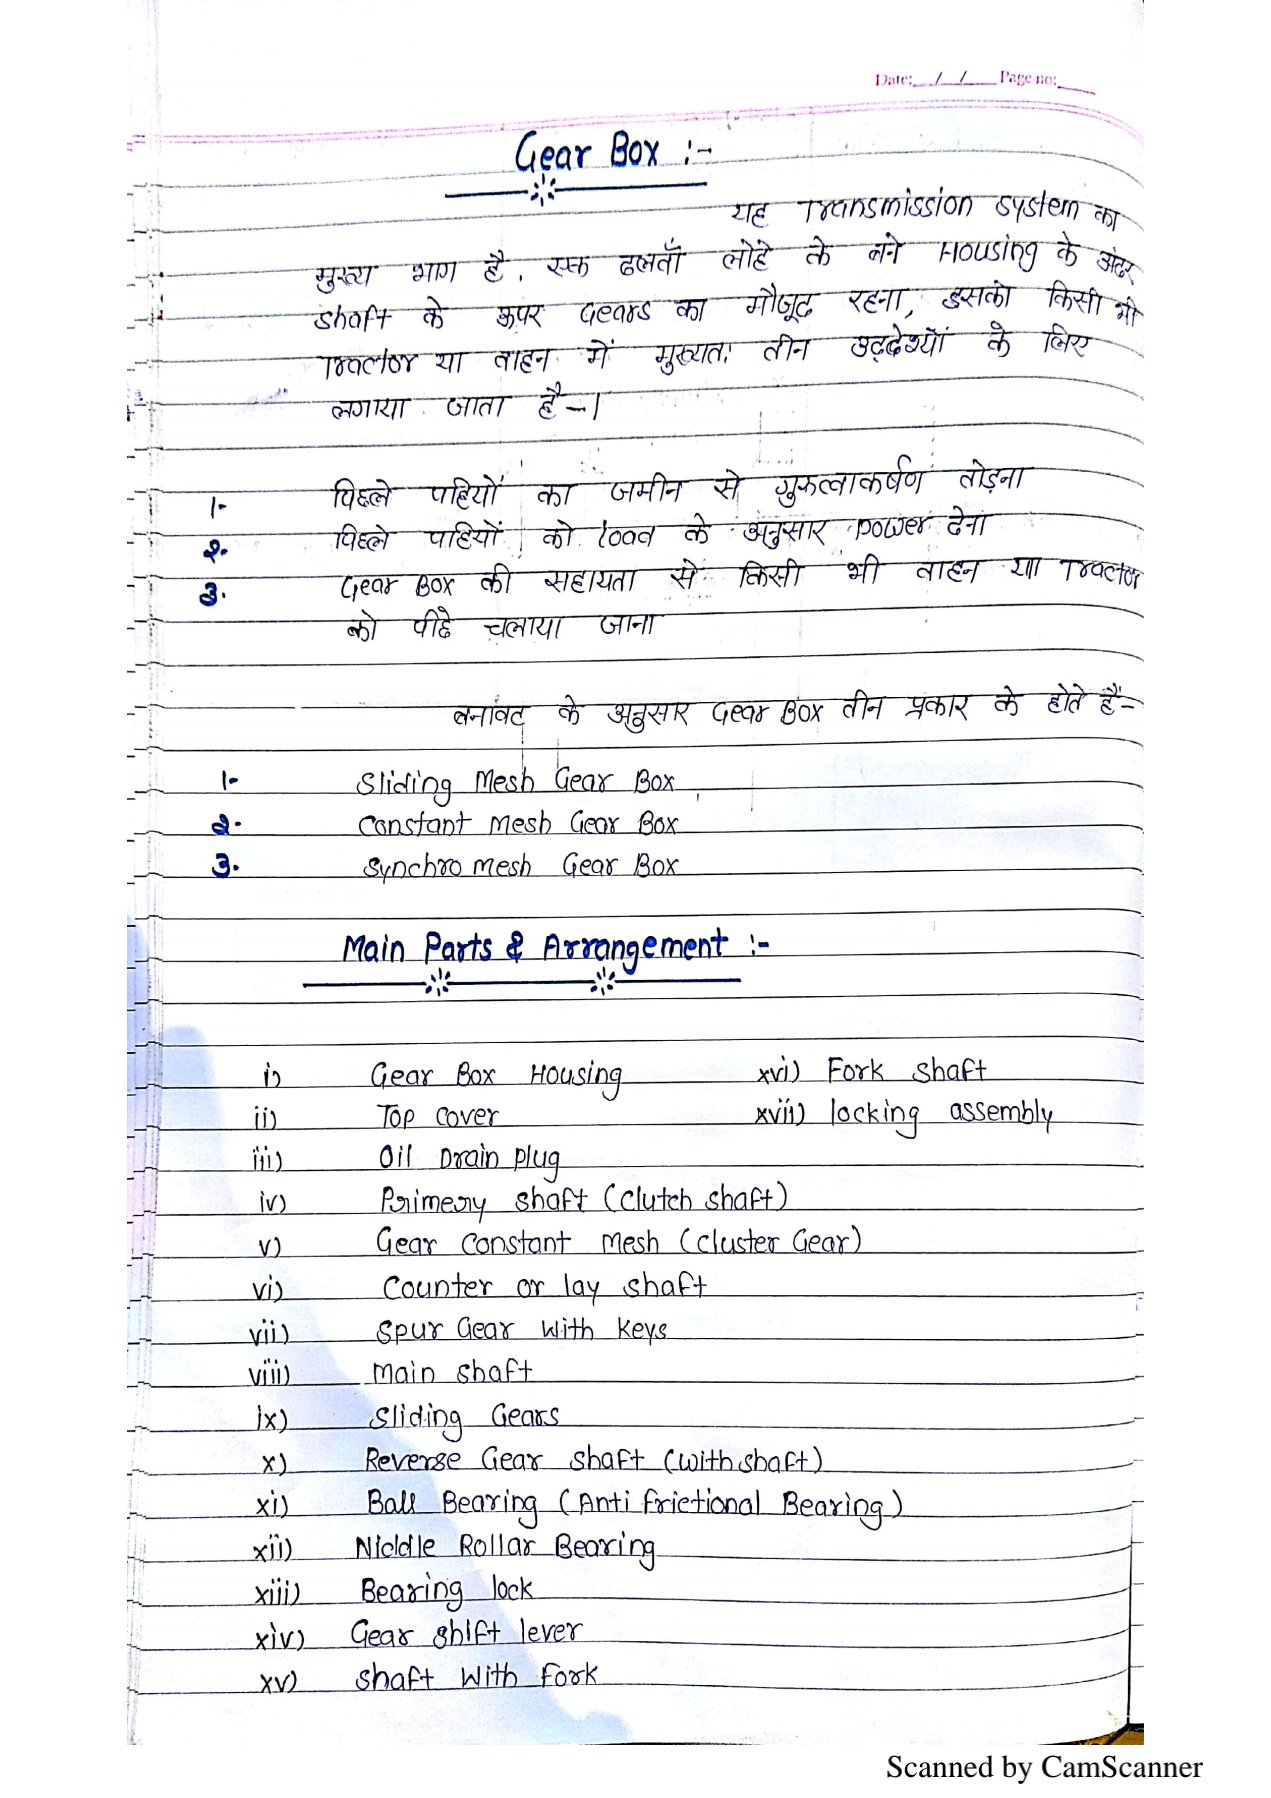 Date: / / Page no:
Gear Box :-
यह Transmission system का
मुख्य भाग है, एक ढलवाँ लोहे के बने Housing के अंदर
shaft के ऊपर Gears का मौजूद रहना, इसको किसी भी
Tractor या वाहन में मुख्यत: तीन उद्देश्यों के लिए
लगाया जाता है -।
1- पिछ्ले पहियों का जमीन से गुरुत्वाकर्षण तोड़ना
2. पिछ्ले पहियों को load के अनुसार power देना
3. Gear Box की सहायता से किसी भी वाहन या Tractor
को पीछे चलाया जाना
बनावट के अनुसार Gear Box तीन प्रकार के होते हैं-
1- Sliding Mesh Gear Box
2. Constant Mesh Gear Box
3. Synchro mesh Gear Box
Main Parts & Arrangement :-
i) Gear Box Housing xvi) Fork shaft
ii) Top cover xvii) locking assembly
iii) Oil Drain plug
iv) Primery shaft (clutch shaft)
v) Gear constant mesh (cluster Gear)
vi) Counter or lay shaft
vii) Spur Gear with keys
viii) Main shaft
ix) Sliding Gears
x) Reverse Gear shaft (with shaft)
xi) Ball Bearing (Anti frictional Bearing)
xii) Niddle Rollar Bearing
xiii) Bearing lock
xiv) Gear shift lever
xv) Shaft with fork
Scanned by CamScanner